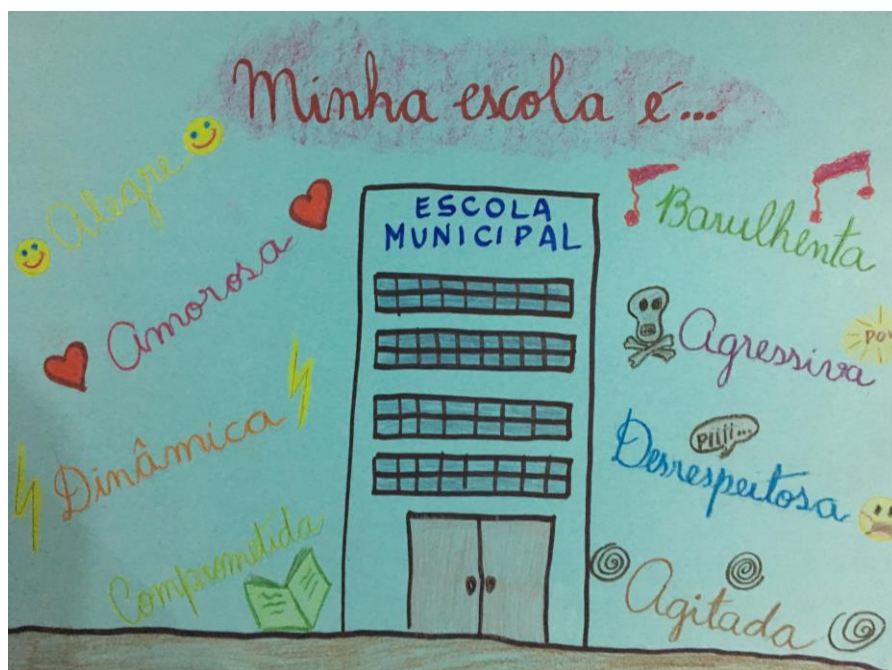 Minha escola é...
Alegre
Amorosa
Dinâmica
Comprometida
ESCOLA
MUNICIPAL
Barulhenta
Agressiva
POW
Desrespeitosa
PIIII...
Agitada